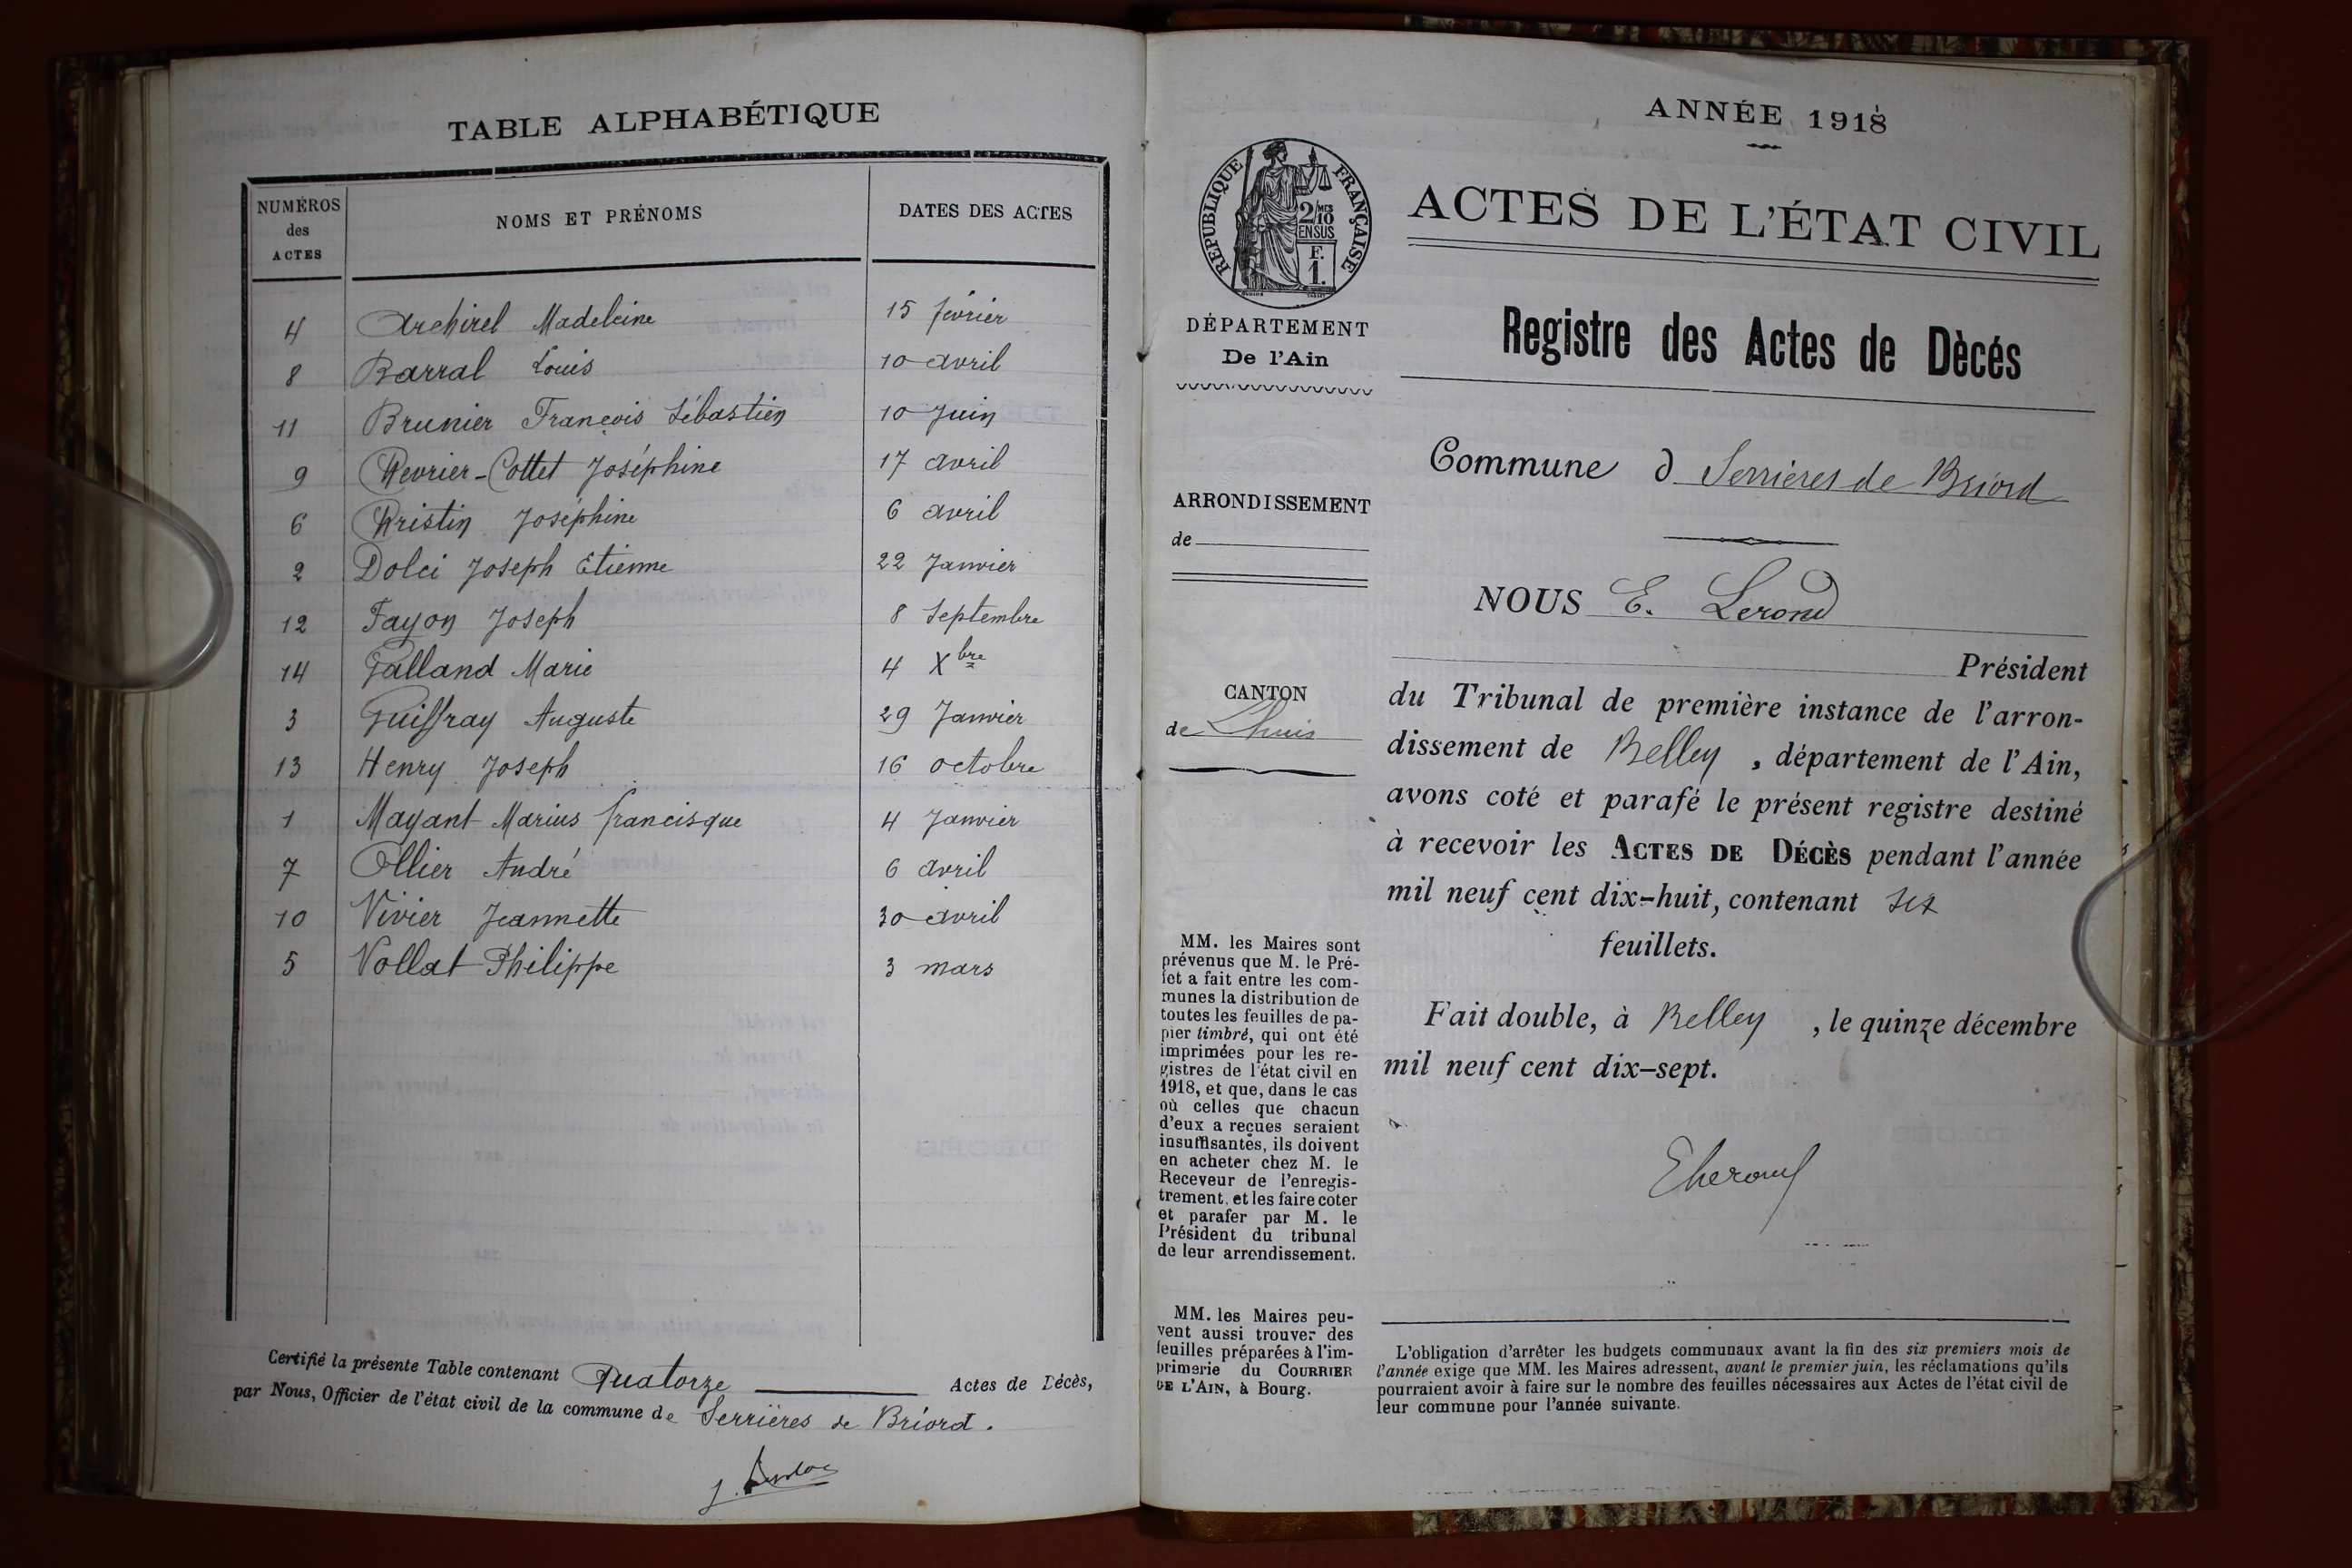 TABLE ALPHABÉTIQUE
NUMÉROS des ACTES NOMS ET PRÉNOMS DATES DES ACTES
4 Archirel Madeleine 15 février
8 Barral Louis 10 avril
11 Brunier François Sébastien 10 Juin
9 Chevrier-Cottet Joséphine 17 avril
6 Christin Joséphine 6 avril
2 Dolci Joseph Etienne 22 Janvier
12 Fayon Joseph 8 Septembre
14 Galland Marie 4 Xbre
3 Guiffray Auguste 29 Janvier
13 Henry Joseph 16 octobre
1 Mayant Marius francisque 4 Janvier
7 Ollier André 6 avril
10 Vivier Jeannette 30 avril
5 Vollat Philippe 3 mars
Certifié la présente Table contenant Quatorze Actes de Décès,
par Nous, Officier de l'état civil de la commune de Serrières de Briord.
ANNÉE 1918
RÉPUBLIQUE FRANÇAISE
2/10 MES
EN SUS
F.
1.
DÉPARTEMENT
De l'Ain
ARRONDISSEMENT
de
CANTON
de Lhuis
MM. les Maires sont
prévenus que M. le Pré-
fet a fait entre les com-
munes la distribution de
toutes les feuilles de pa-
pier timbré, qui ont été
imprimées pour les re-
gistres de l'état civil en
1918, et que, dans le cas
où celles que chacun
d'eux a reçues seraient
insuffisantes, ils doivent
en acheter chez M. le
Receveur de l'enregis-
trement, et les faire coter
et parafer par M. le
Président du tribunal
de leur arrondissement.
MM. les Maires peu-
vent aussi trouver des
feuilles préparées à l'im-
primerie du COURRIER
DE L'AIN, à Bourg.
ACTES DE L'ÉTAT CIVIL
Registre des Actes de Dècés
Commune d Serrières de Briord
NOUS E. Lerond
Président
du Tribunal de première instance de l'arron-
dissement de Belley , département de l'Ain,
avons coté et parafé le présent registre destiné
à recevoir les ACTES DE DÉCÈS pendant l'année
mil neuf cent dix-huit, contenant six
feuillets.
Fait double, à Belley , le quinze décembre
mil neuf cent dix-sept.
L'obligation d'arrêter les budgets communaux avant la fin des six premiers mois de
l'année exige que MM. les Maires adressent, avant le premier juin, les réclamations qu'ils
pourraient avoir à faire sur le nombre des feuilles nécessaires aux Actes de l'état civil de
leur commune pour l'année suivante.